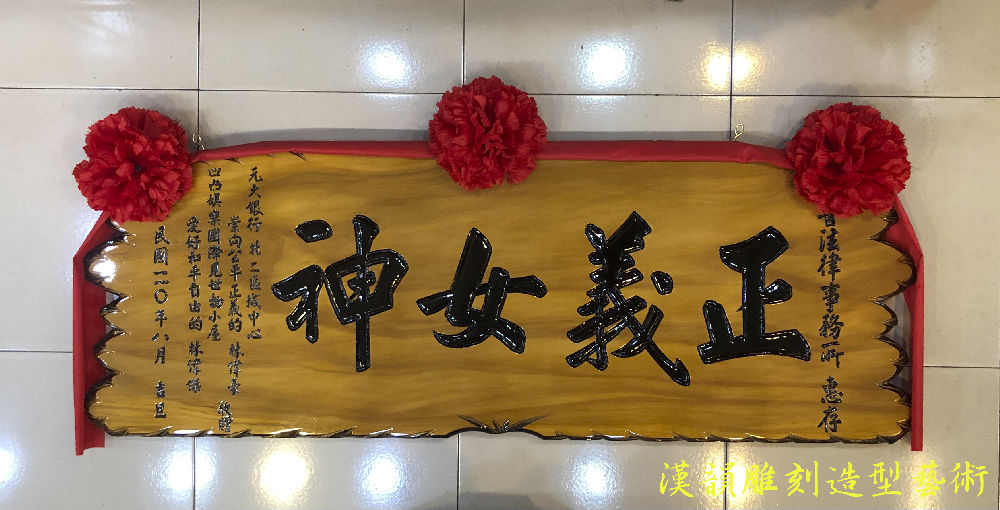 音法律事務所 惠存
正義女神
元大銀行 北二區域中心
崇向公平正義的 林偉豪
凹凸娛樂國際見世物小屋
愛好和平自由的 林偉傑
敬贈
民國一一〇年八月 吉旦
漢韻雕刻造型藝術